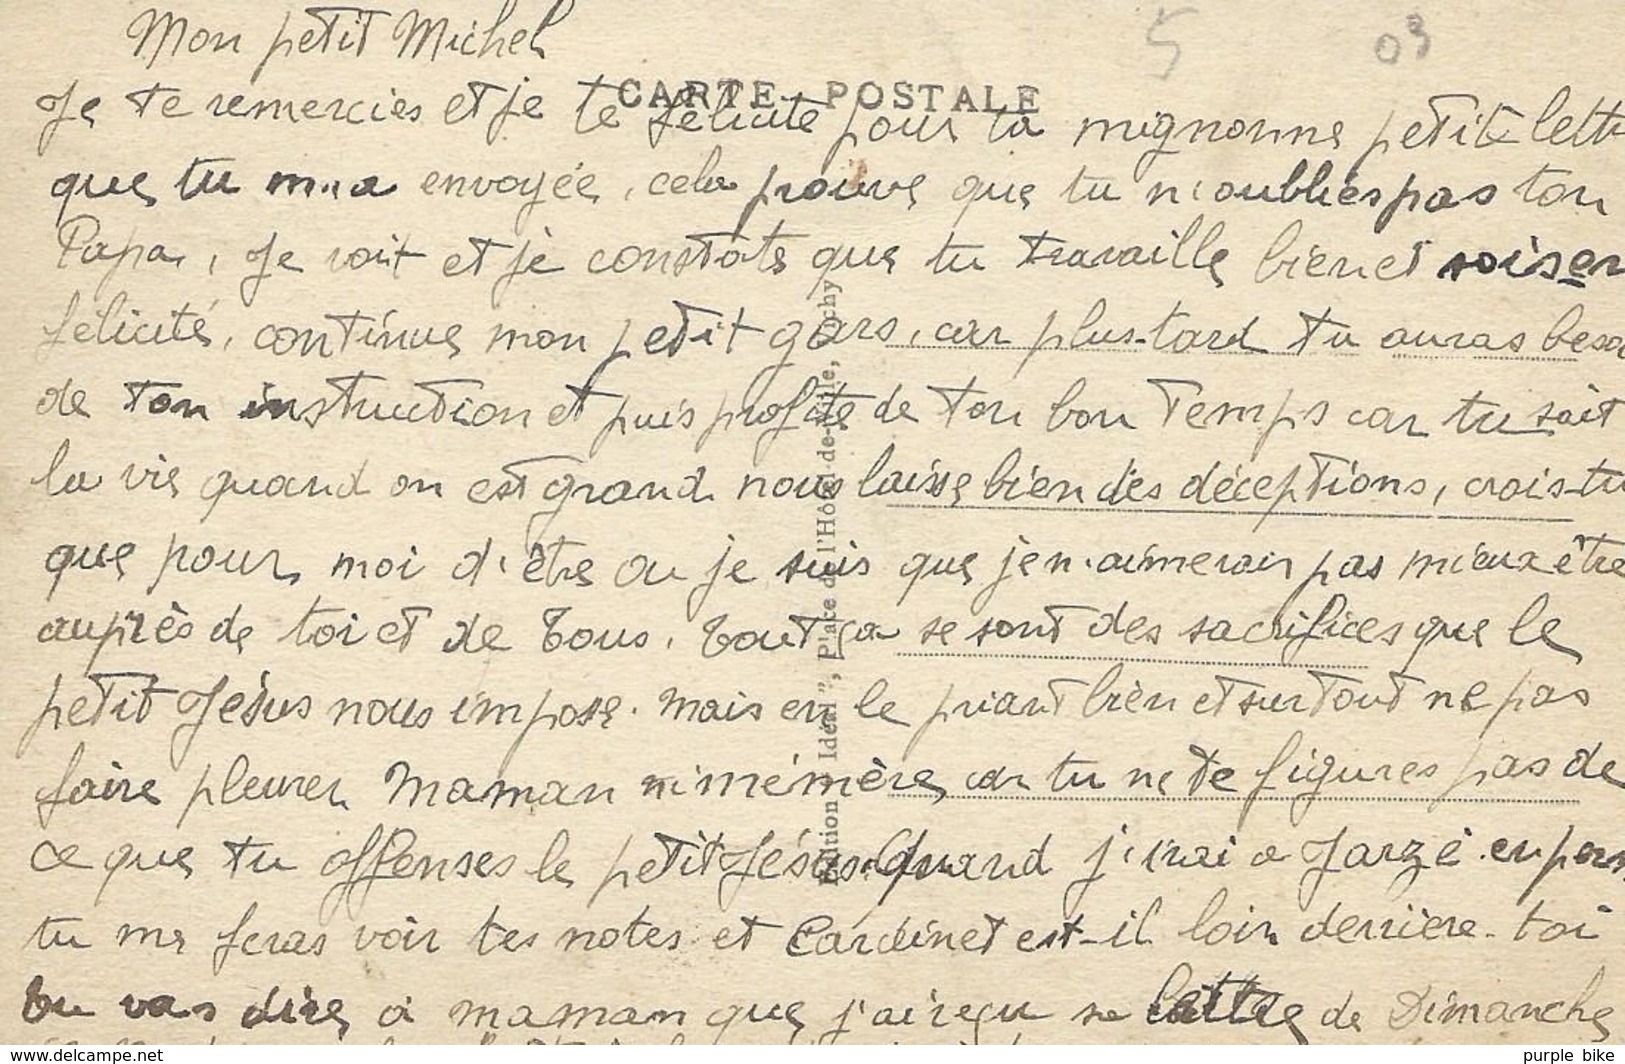 5 03
Mon petit Michel
CARTE POSTALE
Je te remercies et je te félicite pour ta mignonne petite lett
que tu m'a envoyée, cela prouve que tu n'oublies pas ton
Papa, Je voit et je constate que tu travaille bien et sois en
félicité, continue mon petit gars, car plus-tard tu auras beso
de ton instruction et puis profite de ton bon temps car tu sait
la vie quand on est grand nous laisse bien des déceptions, crois-tu
que pour moi d'être ou je suis que je n'aimerais pas mieux être
auprès de toi et de tous. tout ça se sont des sacrifices que le
petit Jésus nous impose. mais en le priant bien et surtout ne pas
faire pleurer Maman ni mémère, car tu ne te figures pas de
ce que tu offenses le petit Jésus. Quand j'irai a Jarzé en per
tu me feras voir tes notes et Cardinet est-il loin derrière toi
tu vas dire à maman que j'ai reçu sa lettre de Dimanche
Edition Idéal", Place de l'Hôtel-de-Ville, Vichy
www.delcampe.net
purple bike